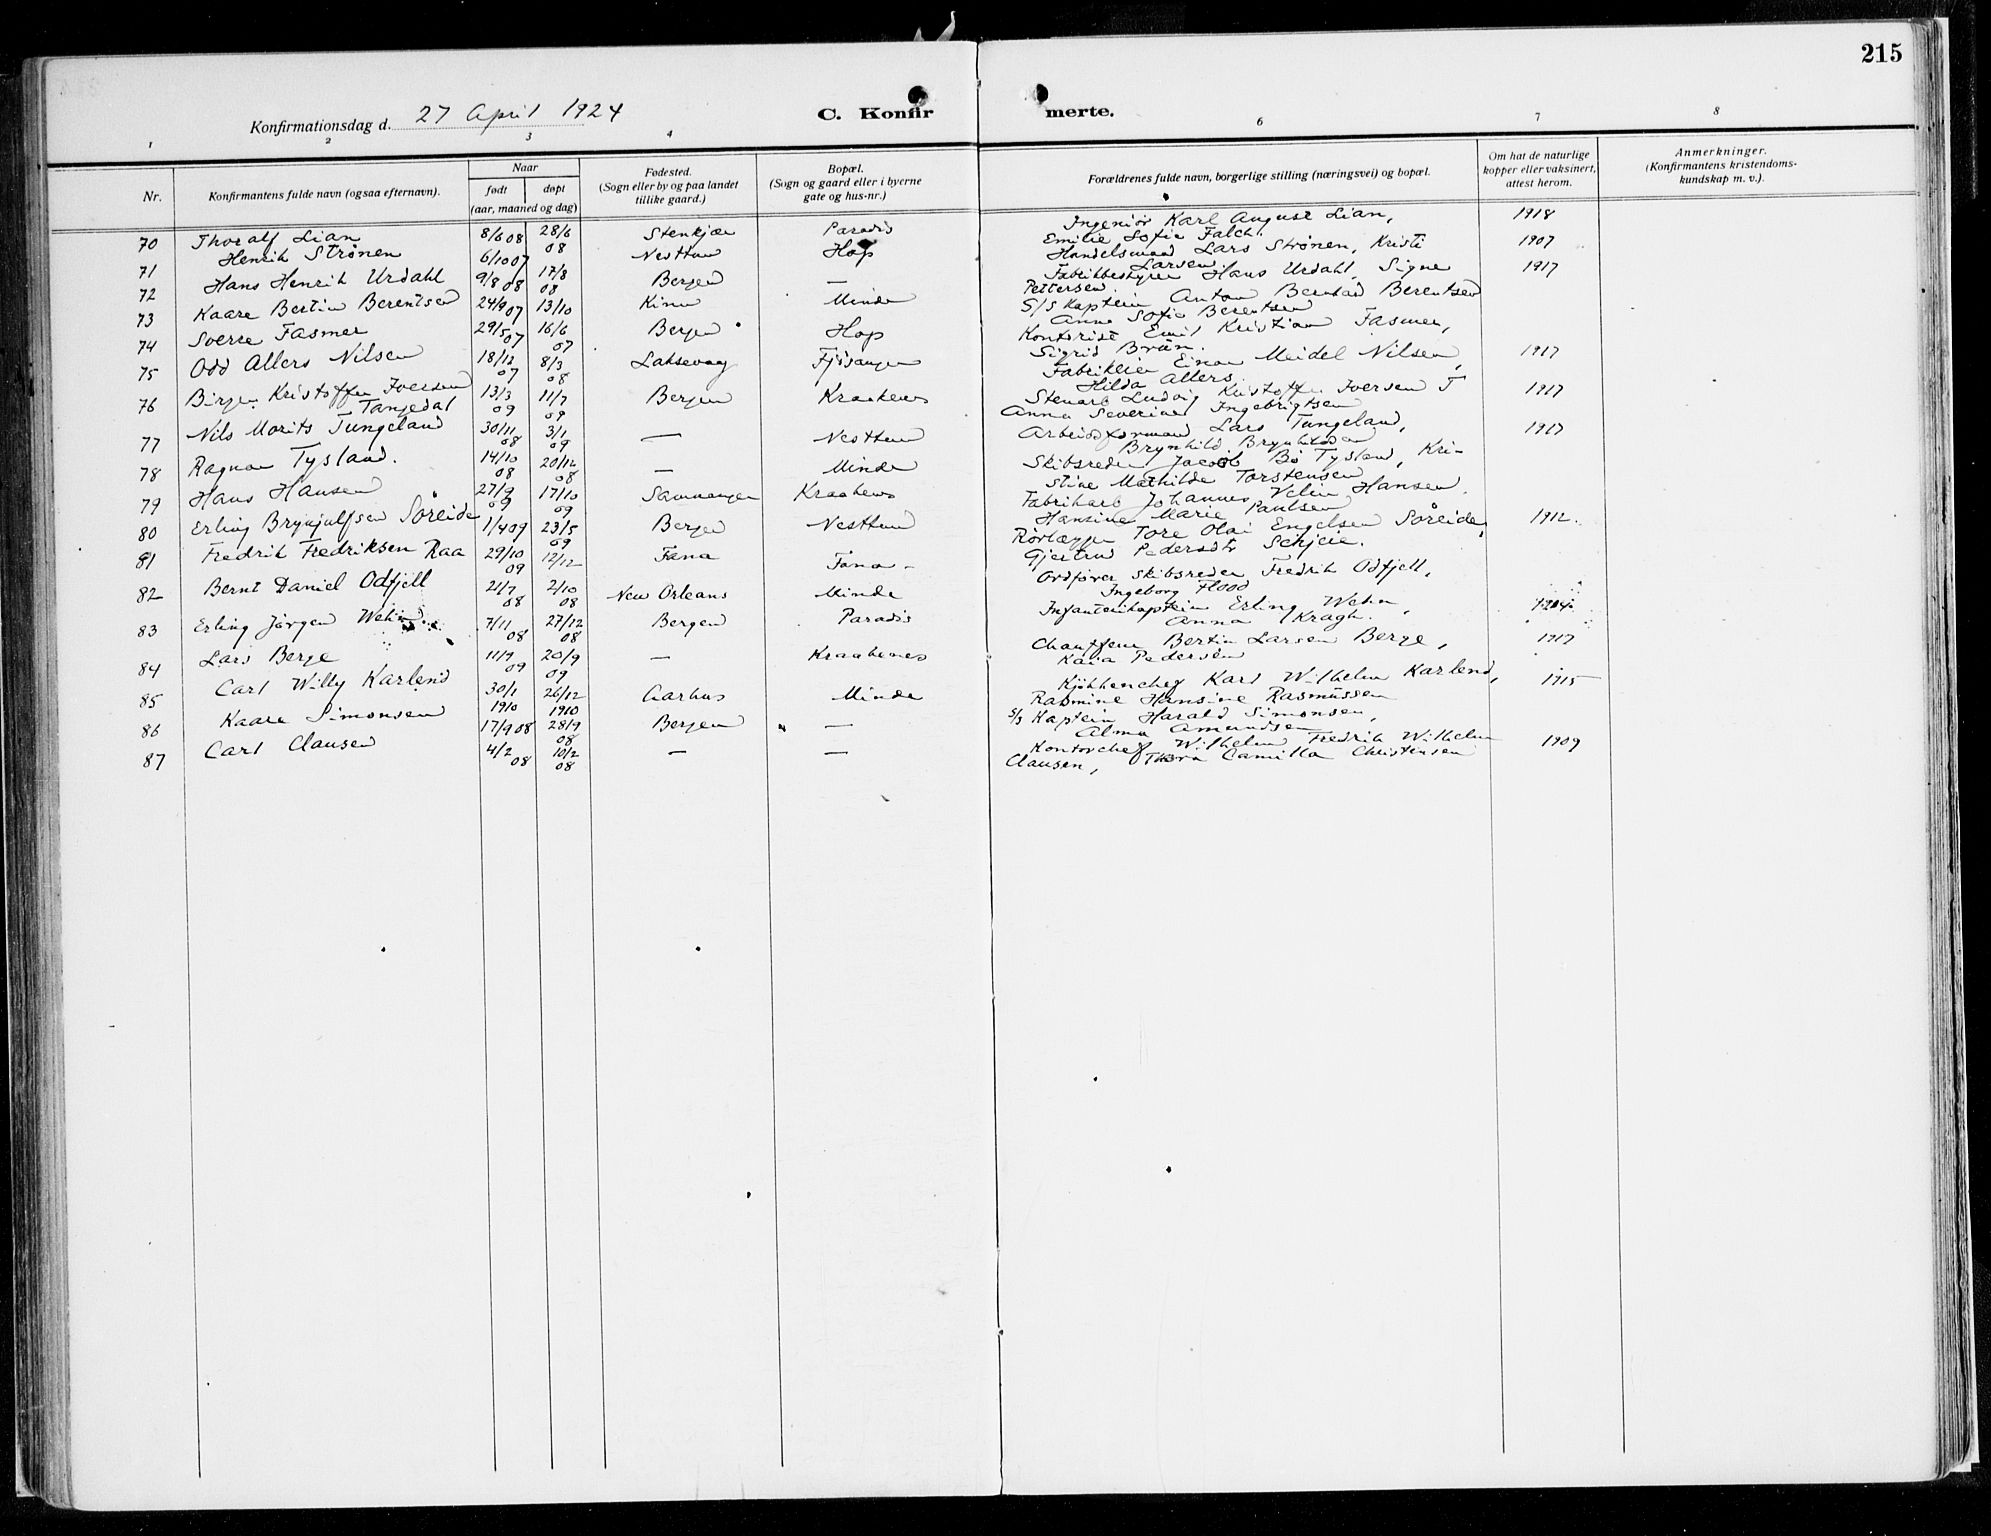 215
Konfirmationsdag d. 27 April 1924
C. Konfir merte.
1 2 3 4 6 7 8
Nr. Konfirmantens fulde navn (ogsaa efternavn). Naar født døpt (aar, maaned og dag)
Fødested. (Sogn eller by og paa landet tillike gaard.)
Bopæl. (Sogn og gaard eller i byerne gate og hus-nr.)
Forældrenes fulde navn, borgerlige stilling (næringsvei) og bopæl.
Om hat de naturlige kopper eller vaksinert, attest herom.
Anmerkninger. (Konfirmantens kristendoms-kundskap m. v.).
70 Thoralf Lian 8/6 08 28/6 08 Stenkjær Paradis Ingeniör Karl August Lian, 1918
Emilie Sofie Falch.
71 Henrik Strönen 6/10 07 Nesttun Hop Handelsmand Lars Strönen, Kristi 1907
Larsen
72 Hans Henrik Urdahl 9/8 08 17/8 08 Bergen — Fabrikbestyrer Hans Urdahl, Signe 1917
Pettersen
73 Kaare Bertin Berentsen 24/9 07 13/10 Kinn Minde S/S Kaptein Anton Bernhard Berentsen
Anna Sofie Berentsen
74 Sverre Fasmer 29/5 07 16/6 07 Bergen Hop Kontorist Emil Kristian Fasmer,
Sigrid Brun.
75 Odd Allers Nilsen 18/12 07 8/3 08 Laksevaag Fjösanger Fabrikeier Einar Meidel Nilsen, 1917
Hilda Allers
76 Birger Kristoffer Iversen Tangedal 13/3 09 11/7 09 Bergen Kraakenes Stenarb Ludvig Kristoffer Iversen T 1917
Anna Severine Ingebrigtsen
77 Nils Morits Tungeland 30/11 08 3/1 09 — Nesttun Arbeidsformand Lars Tungeland, 1917
Brynhild
78 Ragnar Tysland. 14/10 08 20/12 08 — Minde Skibsreder Jacob Bö Tysland, Kri-
stine Mathilde Torstensen
79 Hans Hansen 27/9 09 17/10 09 Samnanger Kraakenes Fabrikarb Johannes Velin Hansen,
Hansine Marie Paulsen
80 Erling Brynjulfsen Söreide 1/4 09 23/5 09 Bergen Nesttun Rörlægger Tore Olai Engelsen Söreide, 1912.
Gjertrud Pedersdtr Schjeie.
81 Fredrik Fredriksen Raa 29/10 09 12/12 Fana Fana
82 Bernt Daniel Odfjell 21/7 08 2/10 08 New Orleans Minde Ordförer skibsreder Fredrik Odfjell,
Ingeborg Flood
83 Erling Jörgen Wehn 7/11 08 27/12 08 Bergen Paradis Infanterikaptein Erling Wehn,
Anna Kragh.
84 Lars Berge 11/9 09 20/9 09 — Kraakenes Chauffeur Bertin Larsen Berge, 1917
Kaia Pedersen
85 Carl Willy Karlend 30/1 1910 26/12 1910 Aarhus Minde Kjökkenchef Karl Wilhelm Karlend, 1915
Rasmine Hansine Rasmussen
86 Kaare Simonsen 17/9 08 28/9 08 Bergen — S/S Kaptein Harald Simonsen,
Alma Amundsen
87 Carl Clausen 4/2 08 10/2 08 — — Kontorchef Wilhelm Fredrik Wilhelm 1909
Clausen, Thora Camilla Christensen